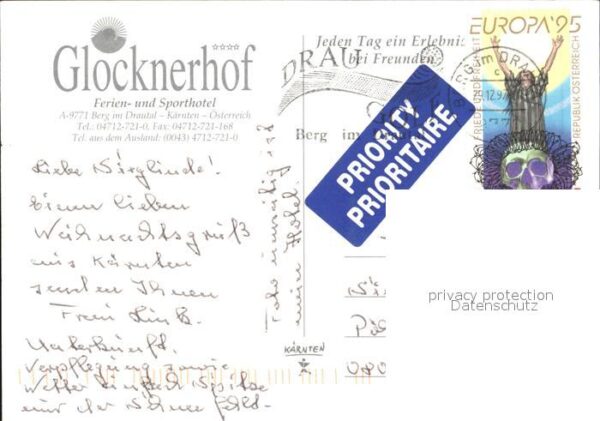 Glocknerhof
Ferien- und Sporthotel
A-9771 Berg im Drautal – Kärnten – Österreich
Tel.: 04712-721-0, Fax: 04712-721-168
Tel. aus dem Ausland: (0043) 4712-721-0
Jeden Tag ein Erlebnis
bei Freunden
DRAU
Berg im
BERG im DRAU
12.97
EUROPA '95
FRIEDE UND FREIHEIT
REPUBLIK ÖSTERREICH
PRIORITY
PRIORITAIRE
Liebe Sieglinde.
Einen lieben
Weihnachtsgruß
aus Kärnten
senden Ihnen
Frau
Unterkunft,
Verpflegung sowie
Wetter einfach Spitze
nur der Schnee fehlt.
Foto umseitig ist
mein Hotel.
KÄRNTEN
privacy protection
Datenschutz